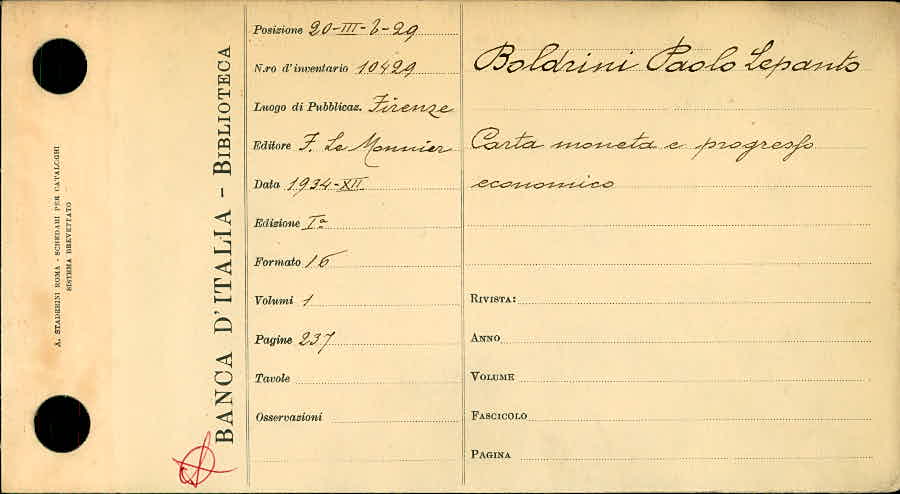 A. STADERINI ROMA - SCHEDARI PER CATALOGHI
SISTEMA BREVETTATO
BANCA D'ITALIA - BIBLIOTECA
Posizione 20-III-6-29
N.ro d'inventario 10429
Luogo di Pubblicaz. Firenze
Editore F. Le Monnier
Data 1934-XII
Edizione Iª
Formato 16
Volumi 1
Pagine 237
Tavole
Osservazioni
Boldrini Paolo Lepanto
Carta moneta e progresso
economico
RIVISTA:
ANNO
VOLUME
FASCICOLO
PAGINA